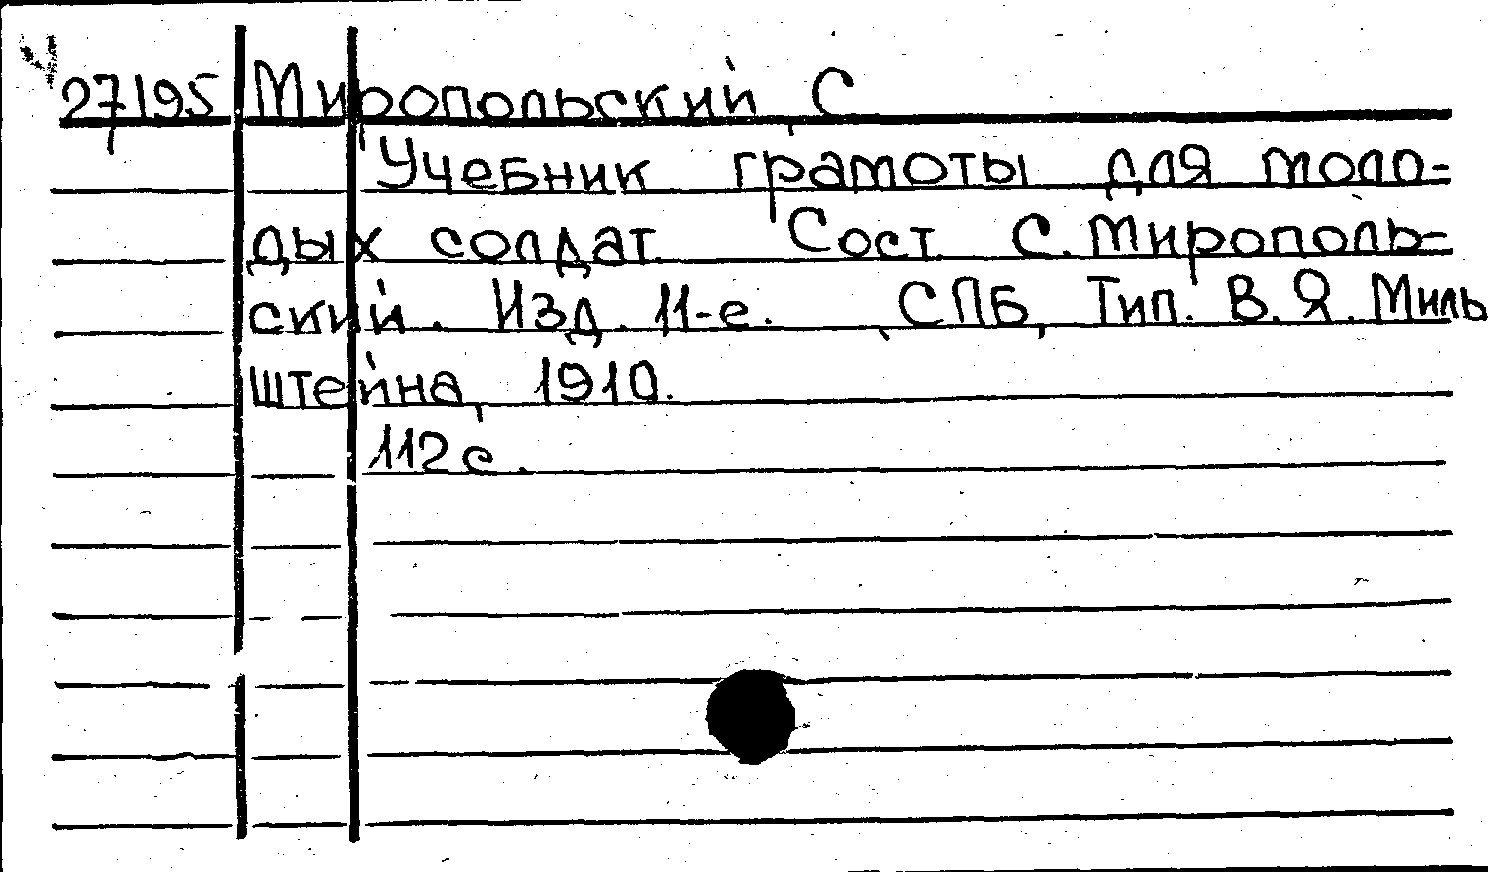 27195 Миропольский, С
Учебник грамоты для моло-
дых солдат. Сост. С. Мирополь-
ский. Изд. 11-е. СПБ, Тип. В. Я. Миль
штейна, 1910.
112 с.